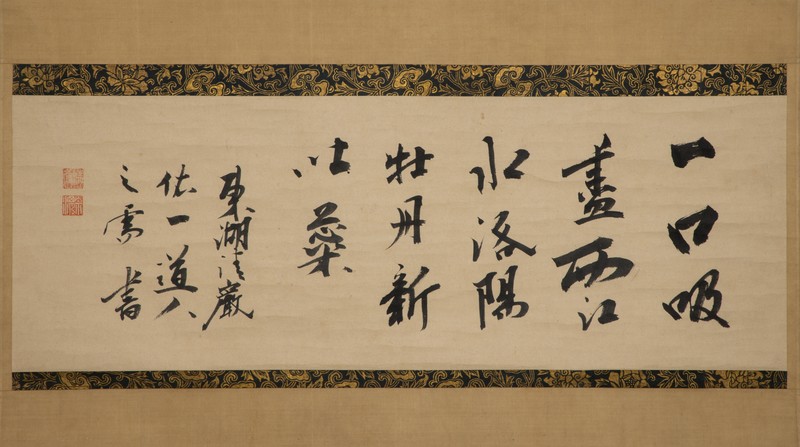 一口吸
盡西江
水洛陽
牡丹新
吐蘂
東湖清巖
佐一道人
之需書